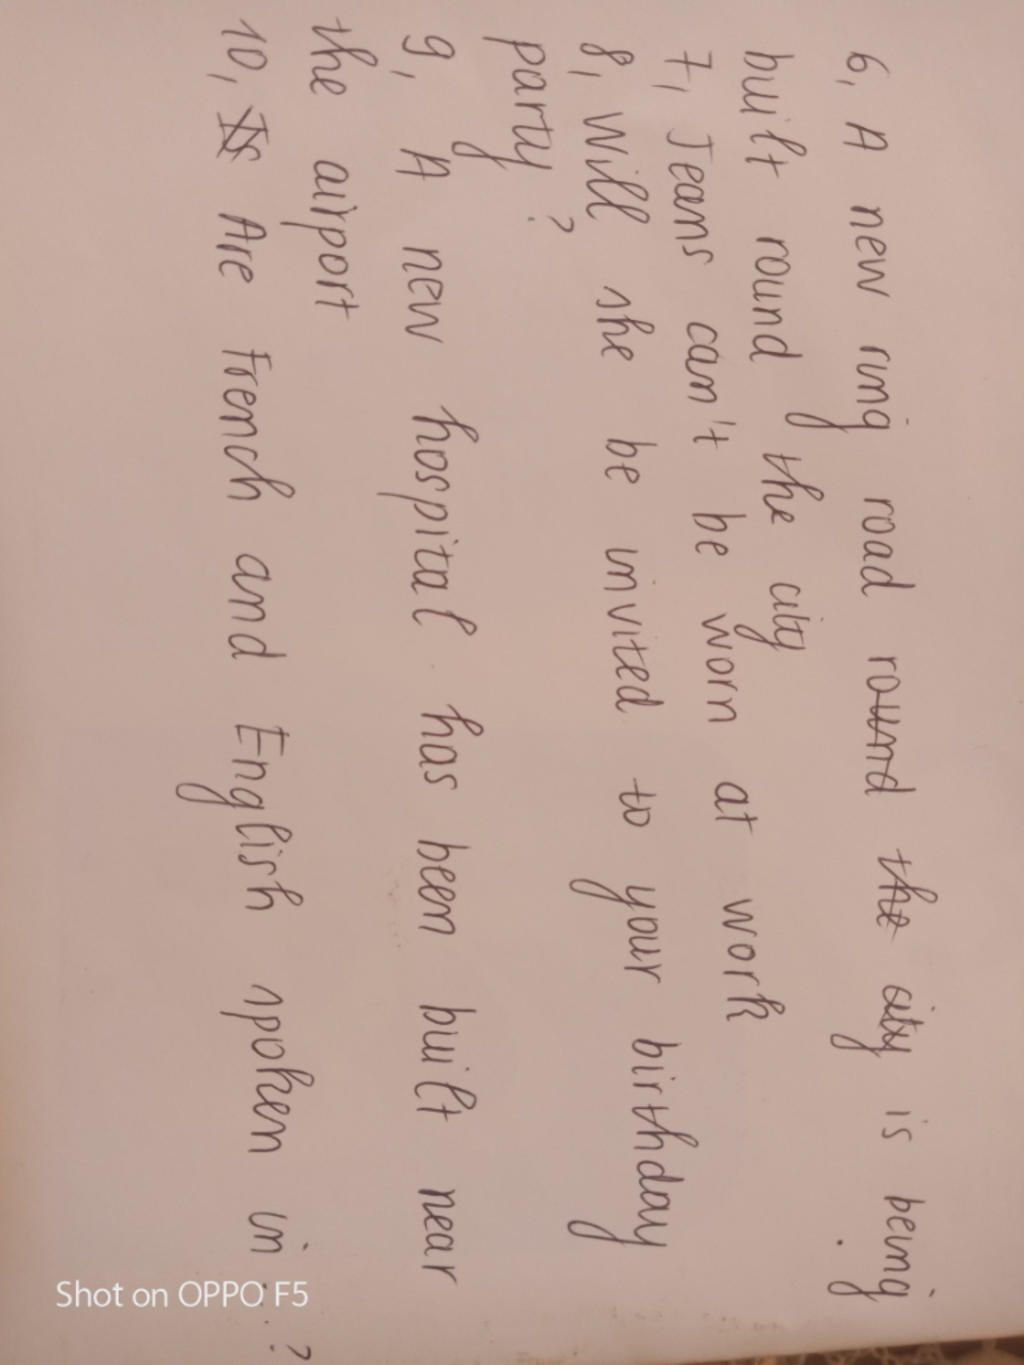 6, A new ring road round the city is being
built round the city
7, Jeans can't be worn at work
8, Will she be invited to your birthday
party?
9, A new hospital has been built near
the airport
10, Is Are French and English spoken in...?
Shot on OPPO F5